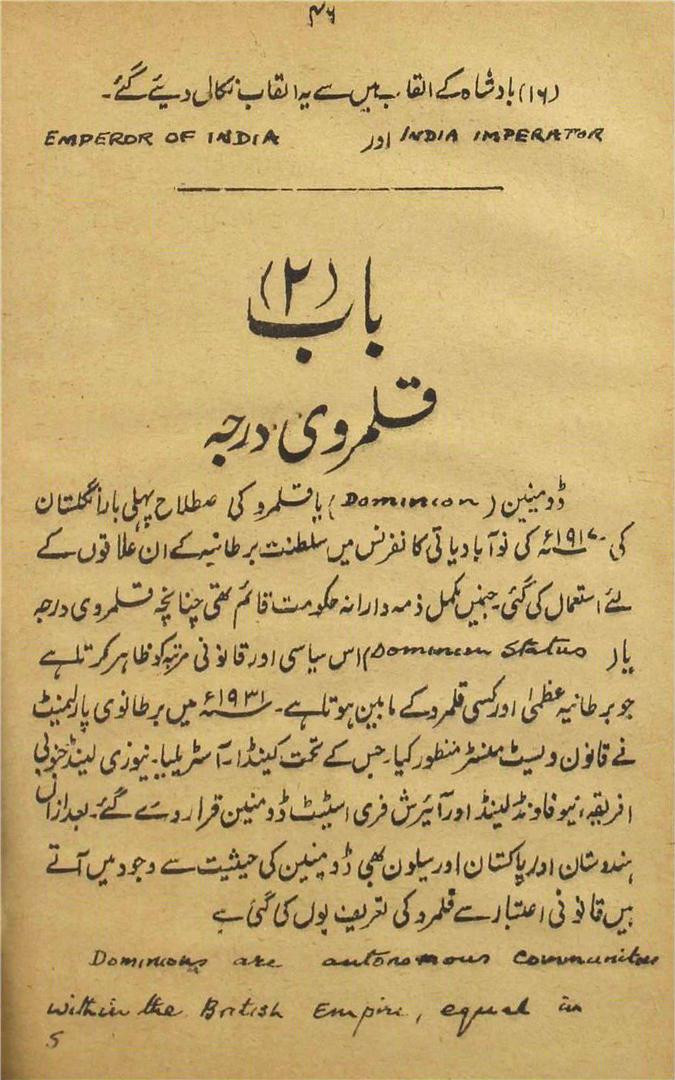 ۴۶
(۱۶) بادشاہ کے القاب میں سے یہ القاب نکالی دیئے گئے۔
INDIA IMPERATOR اور EMPEROR OF INDIA
باب (۲)
قلمروی درجہ
ڈومینین (Dominion) یا قلمرو کی صطلاح پہلی بار انگلستان
کی ۱۹۱۷ء کی نوآبادیاتی کانفرنس میں سلطنت برطانیہ کے ان علاقوں کے
لئے استعمال کی گئی۔ جنمیں مکمل ذمہ دارانہ حکومت قائم تھی چنانچہ قلمروی درجہ
یا (Dominion Status) اس سیاسی اور قانونی مرتبہ کو ظاہر کرتا ہے
جو برطانیہ عظمیٰ اور کسی قلمرو کے مابین ہوتا ہے۔ ۱۹۳۱ء میں برطانوی پارلیمنٹ
نے قانون ویسٹ منسٹر منظور کیا۔ جس کے تحت کینڈا۔ آسٹریلیا۔ نیوزی لینڈ جنوبی
افریقہ، نیو فاونڈ لینڈ اور آئیرش فری اسٹیٹ ڈومنین قرار دے گئے۔ بعد ازاں
ہندوستان اور پاکستان اور سیلون بھی ڈومنین کی حیثیت سے وجود میں آتے
ہیں قانونی اعتبار سے قلمرو کی تعریف یوں کی گئی ہے
Dominions are autonomous communities
within the British Empire, equal in
S